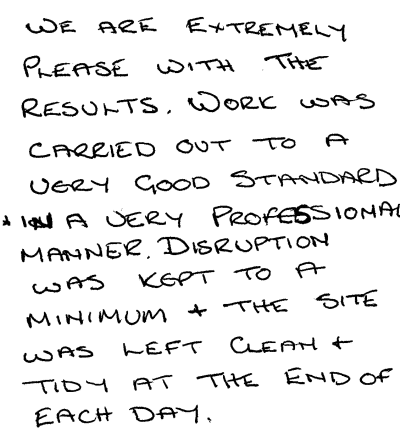 WE ARE EXTREMELY
PLEASE WITH THE
RESULTS. WORK WAS
CARRIED OUT TO A
VERY GOOD STANDARD
+ IN A VERY PROFESSIONAL
MANNER. DISRUPTION
WAS KEPT TO A
MINIMUM + THE SITE
WAS LEFT CLEAN +
TIDY AT THE END OF
EACH DAY.